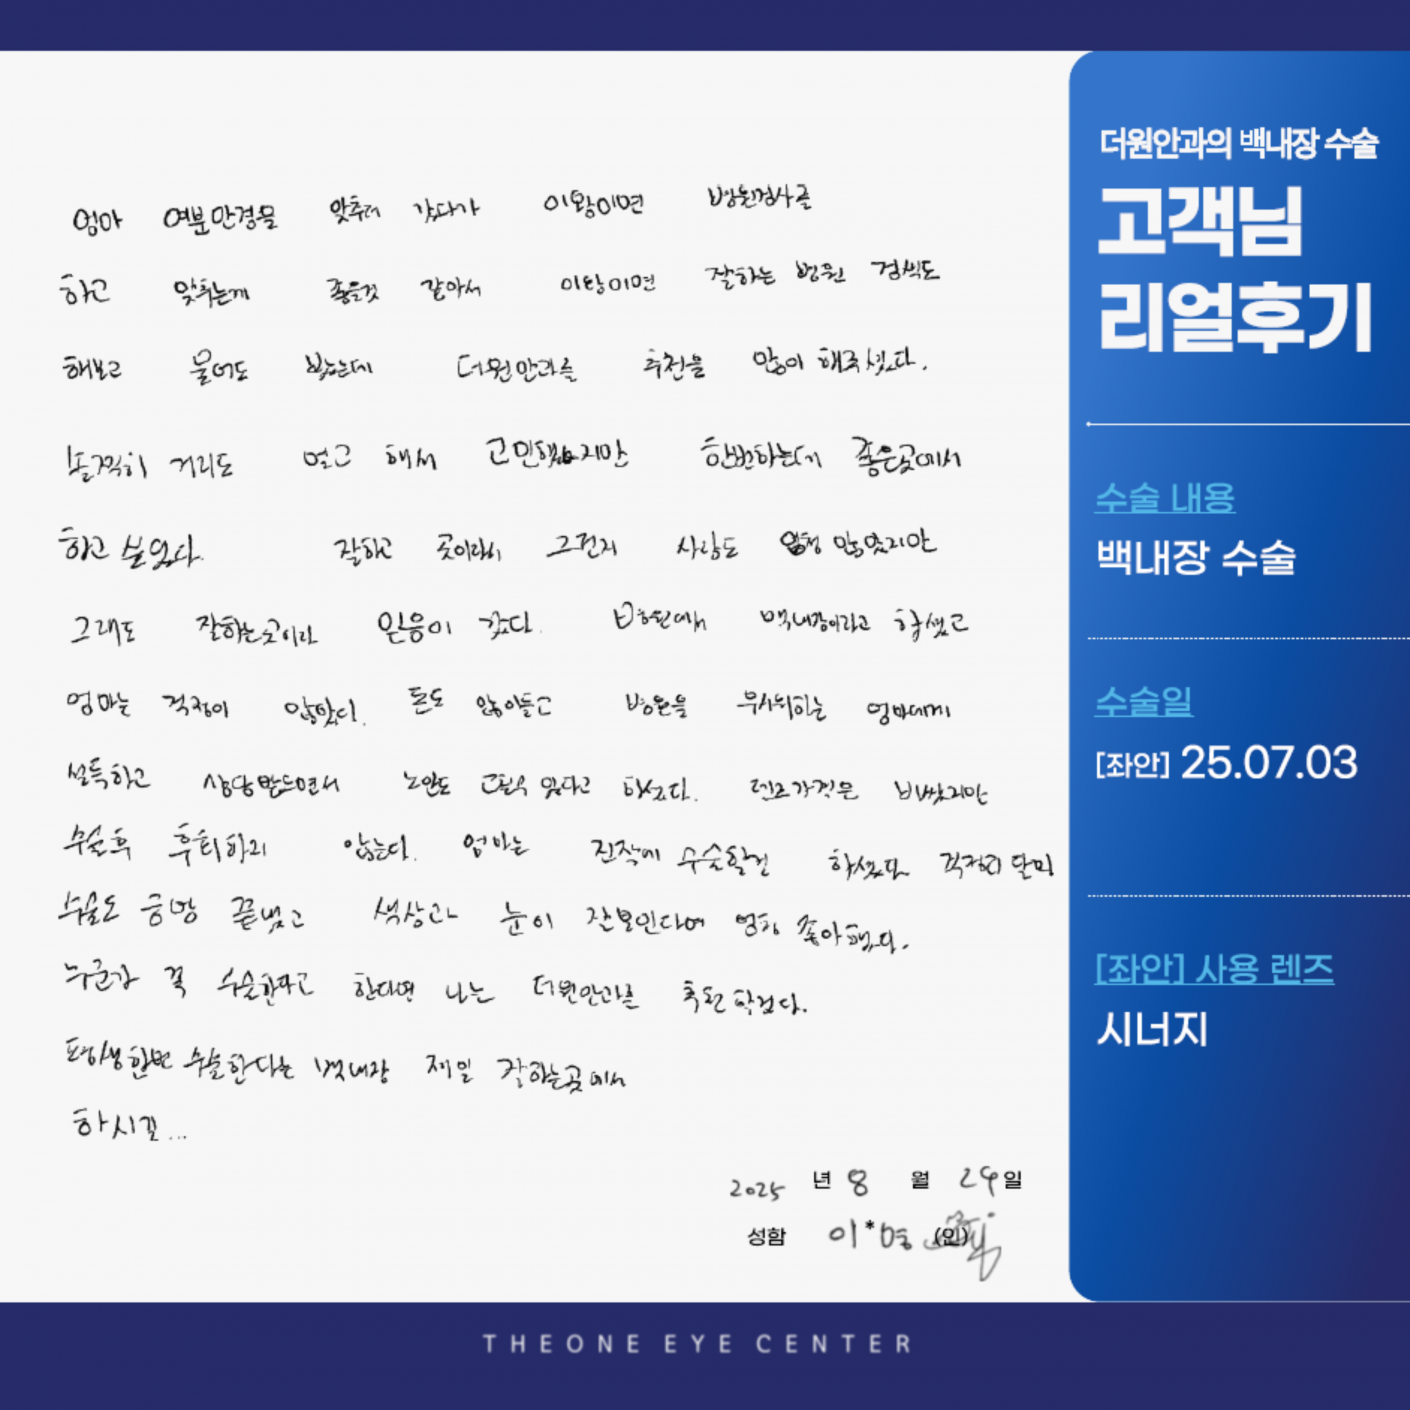 엄마 여분안경을 맞추러 갔다가 이왕이면 병원검사를
하고 맞추는게 좋을것 같아서 이왕이면 잘하는 병원 검색도
해보고 물어도 봤는데 더원안과를 추천을 많이 해주셨다.
솔직히 거리도 멀고 해서 고민했지만 한번하는데 좋은곳에서
하고 싶었다. 잘하고 곳이라 그런지 사람도 엄청 많았지만
그래도 잘하는곳이라 믿음이 갔다. 병원에서 백내장이라고 하셨고
엄마는 걱정이 많았다. 돈도 많이들고 병원을 무서워하는 엄마에게
설득하고 상담받으면서 노안도 교정할수 있다고 하셨다. 렌즈가격은 비쌌지만
수술후 후회하지 않는다. 엄마는 진작에 수술할걸 하셨다 걱정과 달리
수술도 금방 끝났고 색상과 눈이 잘보인다며 엄청 좋아했다.
누군가 꼭 수술한다고 한다면 나는 더원안과를 추천 할것다.
평생한번 수술한다는 백내장 제일 잘하는곳에서
하시길...
2025 년 8 월 29 일
성함 이*명 (인)
더원안과의 백내장 수술
고객님
리얼후기
수술 내용
백내장 수술
수술일
[좌안] 25.07.03
[좌안] 사용 렌즈
시너지
THEONE EYE CENTER